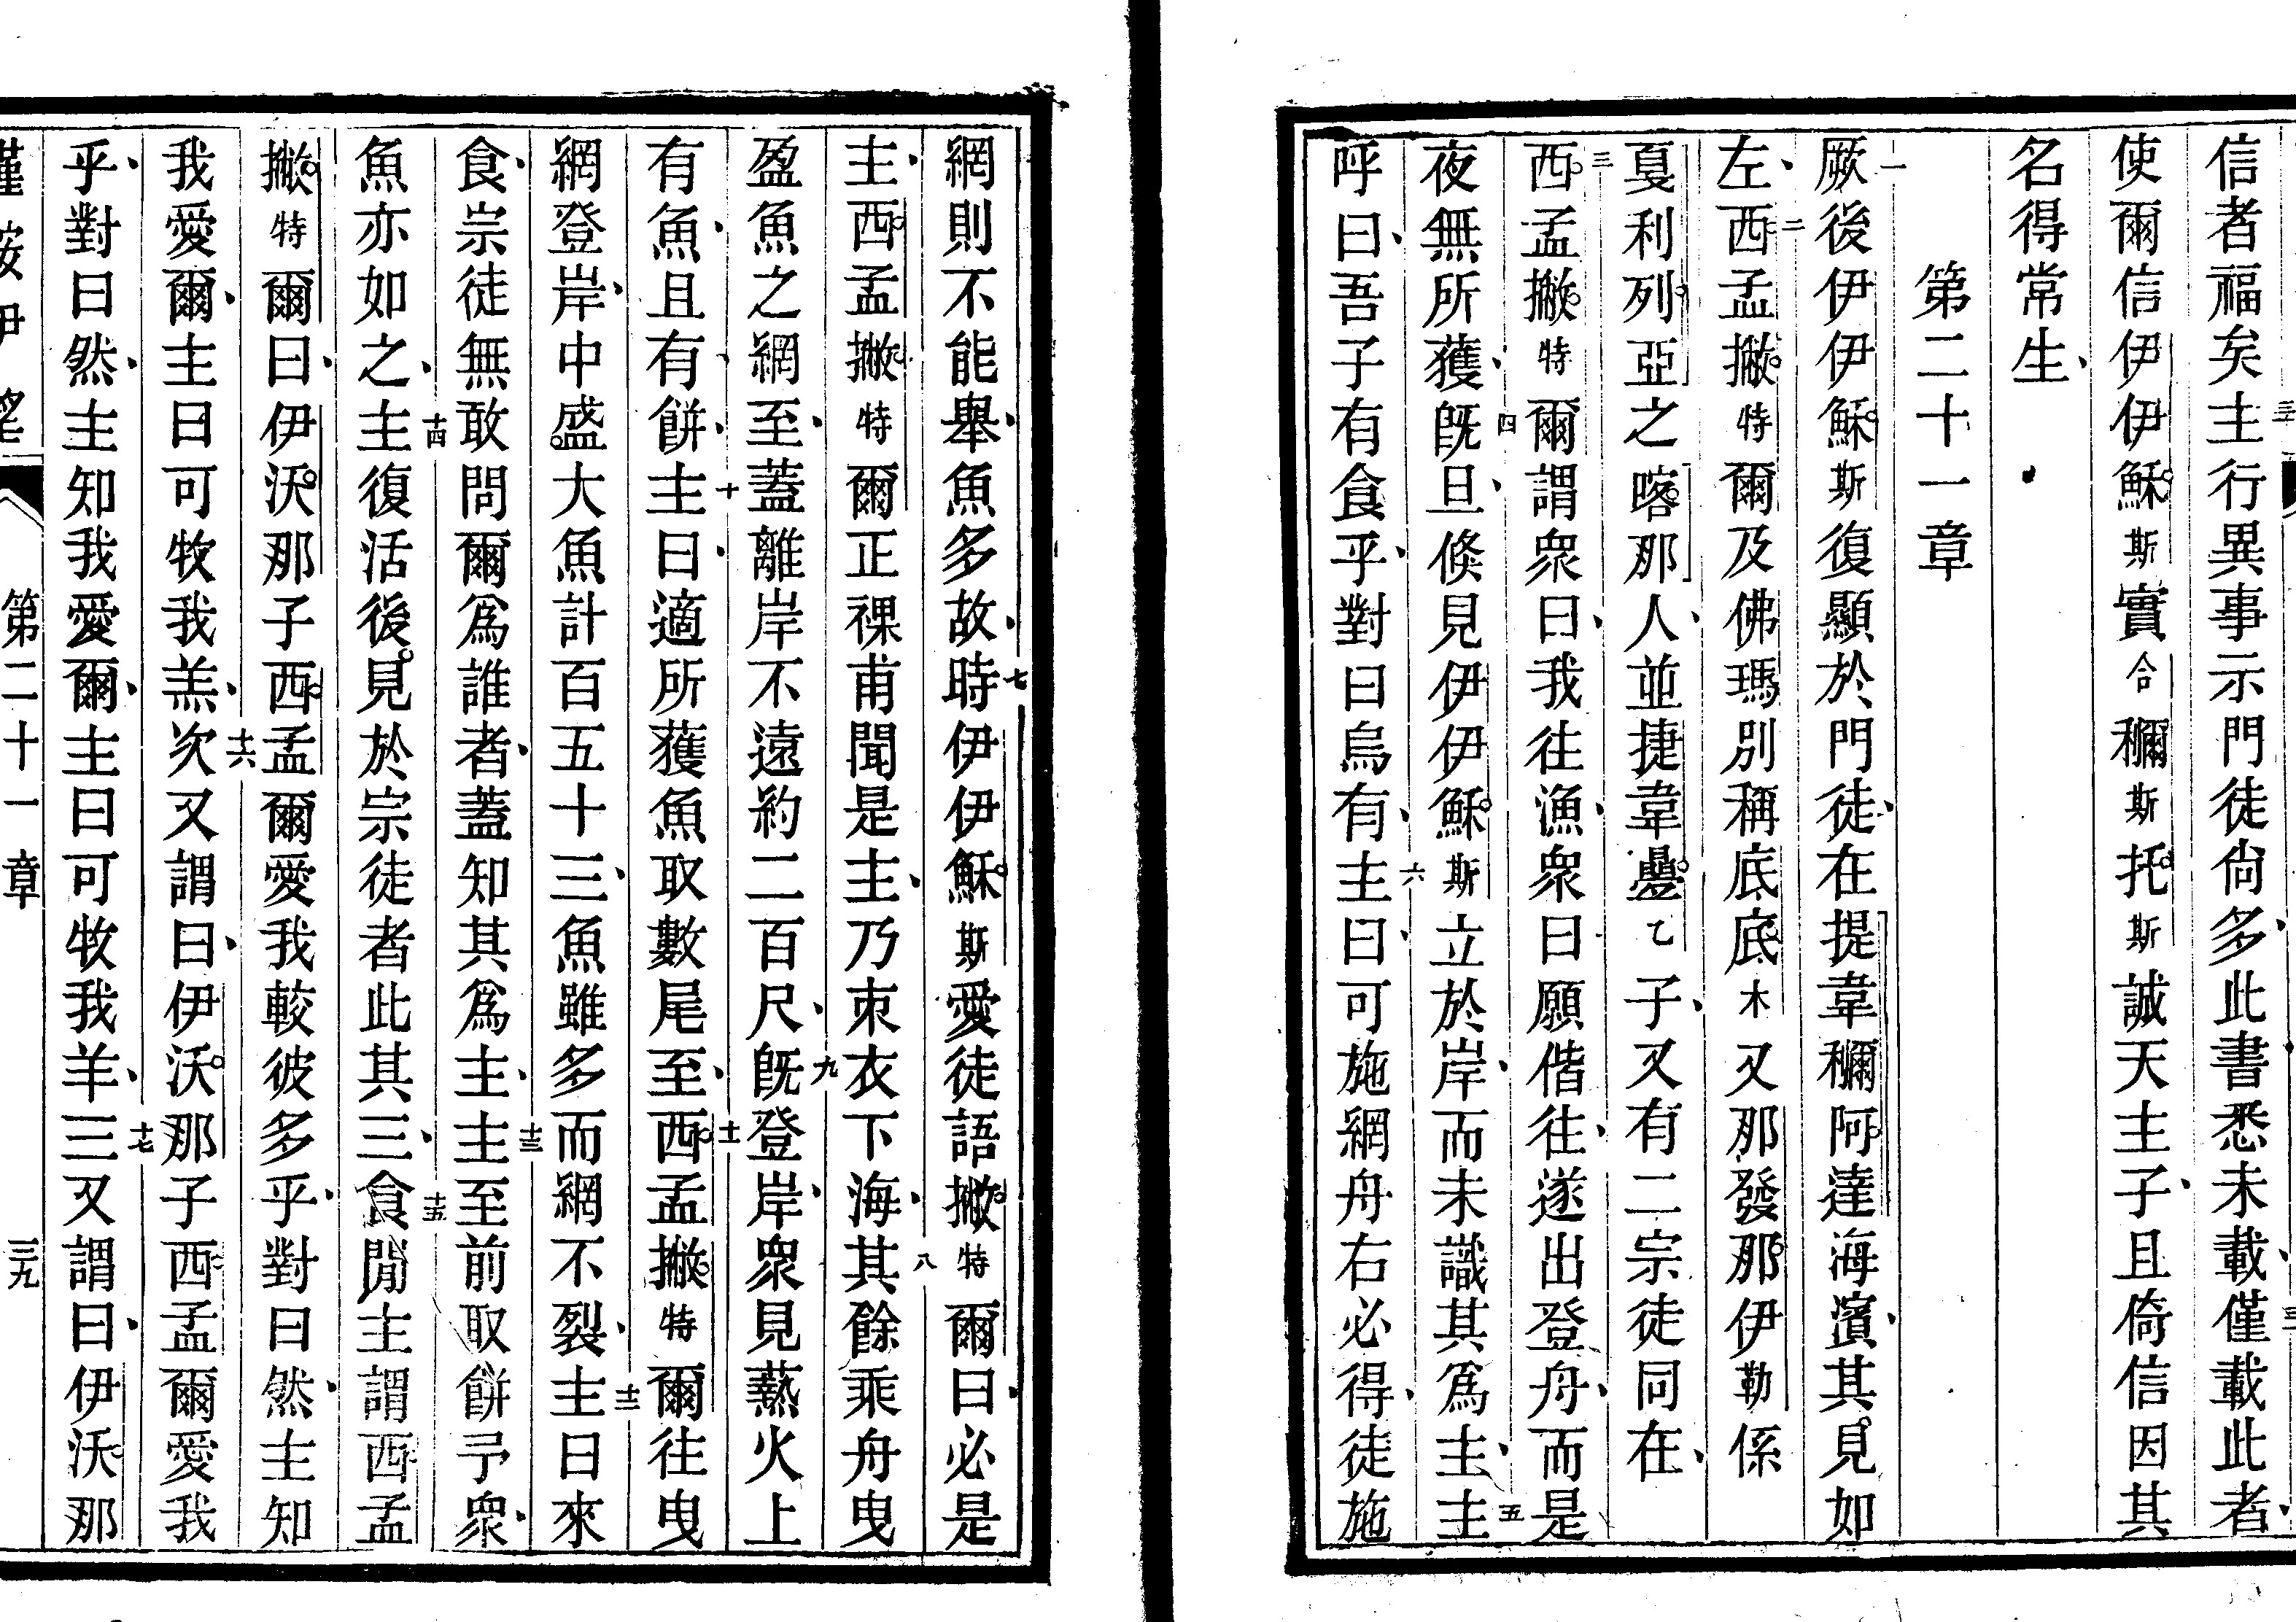 信者福矣主三行異事示門徒尙多此書悉未載僅三載此者
使爾信伊伊穌斯實合穪斯托斯誠天主子且倚信因其
名得常生
第二十一章
一厥後伊伊穌斯復顯於門徒在提韋穪阿達海濱其見如
左二西孟撇特爾及佛瑪別稱底底木又那發那伊勒係
戛利列亞之喀那人並捷韋疊乙子又有二宗徒同在
三西孟撇特爾謂眾曰我往漁眾曰願偕往遂出登舟而是
夜無所獲四旣旦倐見伊伊穌斯立於岸而未識其爲主五主
呼曰吾子有食乎對曰烏有六主曰可施網舟右必得徒施
網則不能舉魚多故七時伊伊穌斯愛徒語撇特爾曰必是
主西孟撇特爾正裸甫聞是主乃朿衣下海八其餘乘舟曳
盈魚之網至蓋離岸不遠約二百尺九旣登岸眾見爇火上
有魚且有餅十主曰適所獲魚取數尾至十一西孟撇特爾往曳
網登岸中盛大魚計百五十三魚雖多而網不裂十二主曰來
食宗徒無敢問爾爲誰者蓋知其爲主十三主至前取餅予眾
魚亦如之十四主復活後見於宗徒者此其三十五食閒主謂西孟
撇特爾曰伊沃那子西孟爾愛我較彼多乎對曰然主知
我愛爾主曰可牧我羔十六次又謂曰伊沃那子西孟爾愛我
乎對曰然主知我愛爾主曰可牧我羊十七三又謂曰伊沃那
第二十一章 三九